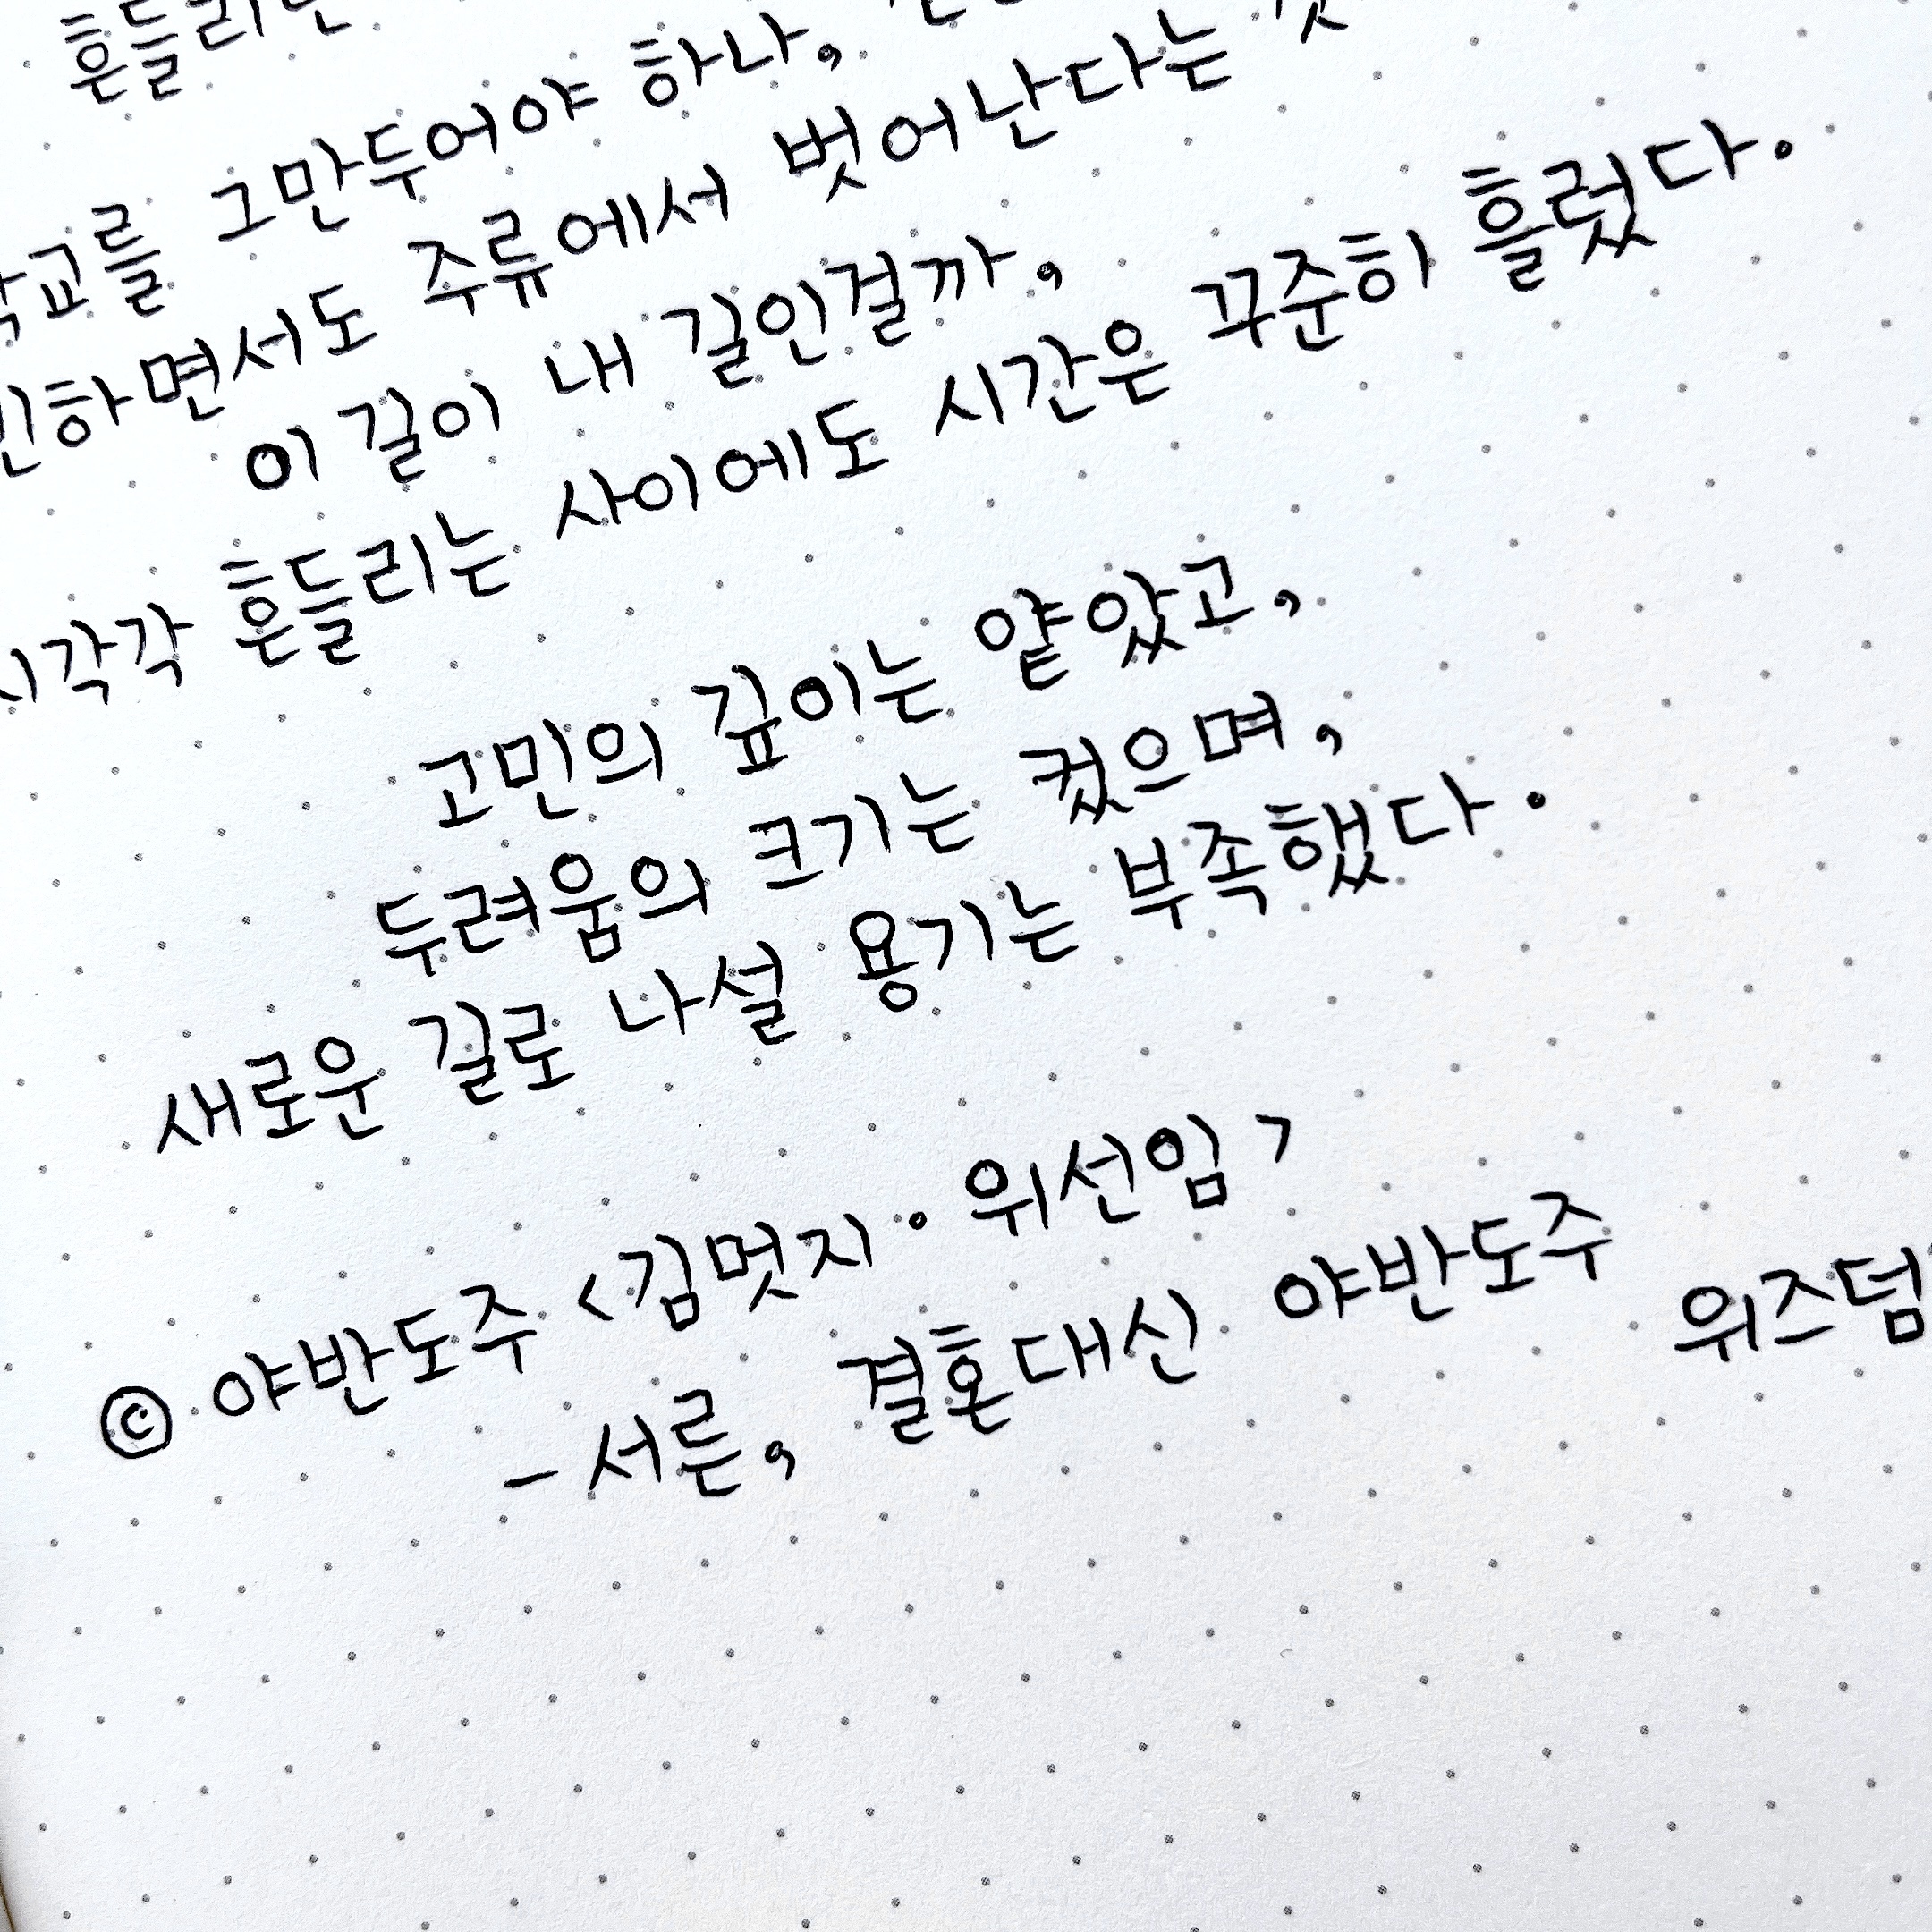 흔들리는
학교를 그만두어야 하나,
민하면서도 주류에서 벗어난다는
이 길이 내 길인걸까,
시각각 흔들리는 사이에도 시간은 꾸준히 흘렀다.
고민의 깊이는 얕았고,
두려움의 크기는 컸으며,
새로운 길로 나설 용기는 부족했다.
© 야반도주 <김멋지·위선임>
-서른, 결혼대신 야반도주 위즈덤